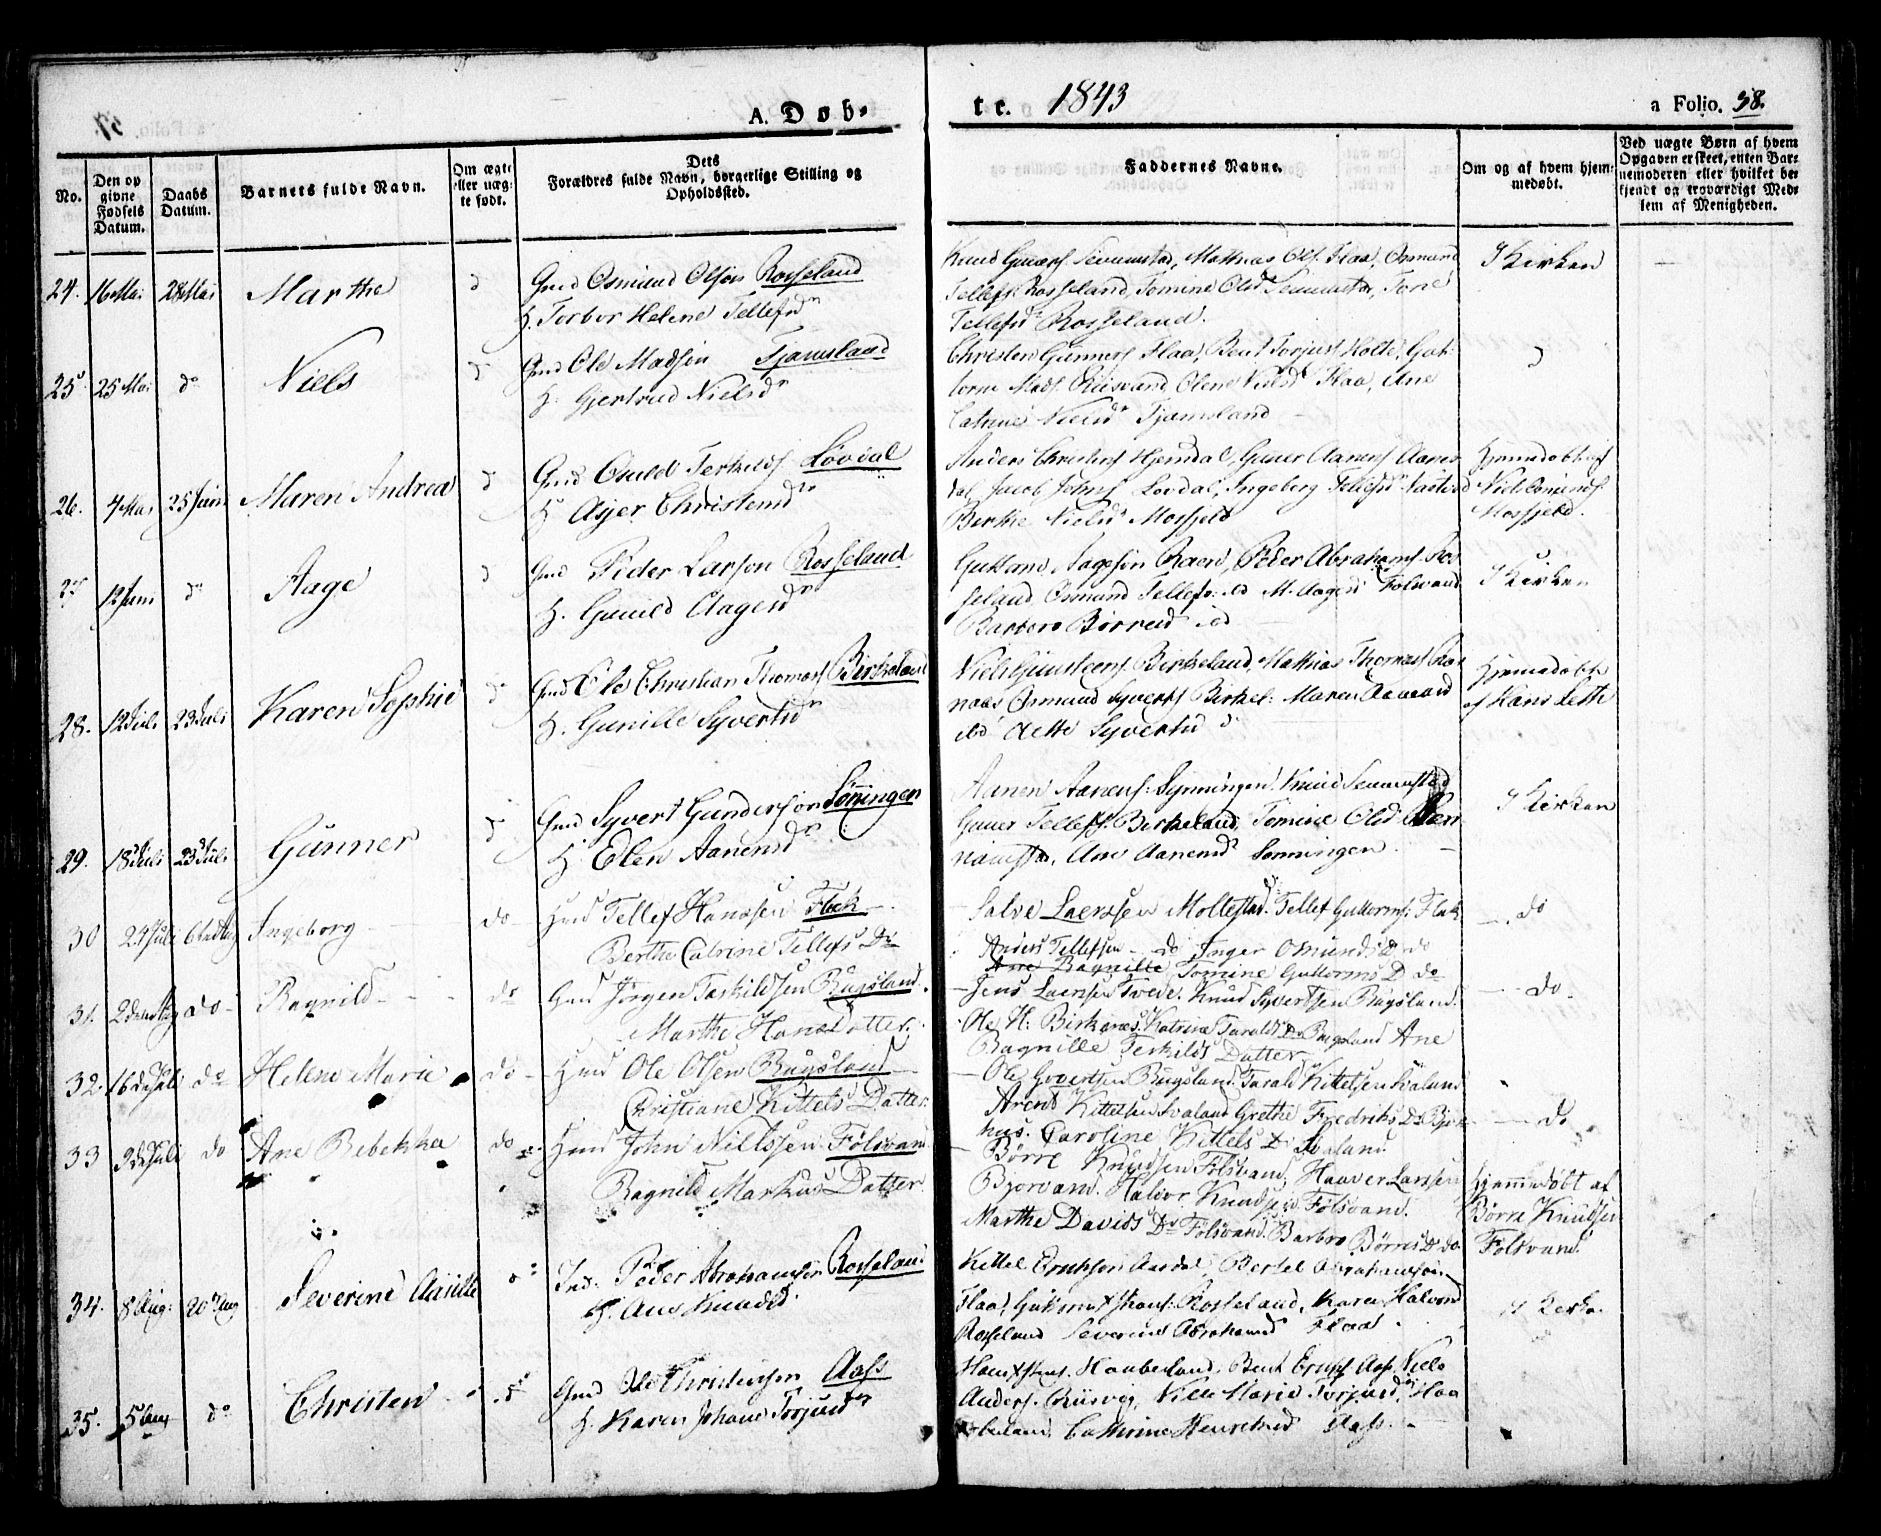 A. Døb-
te. 1843
a Folio. 58.
No.
Den op
givne
Fødsels
Datum.
Daabs
Datum.
Barnets fulde Navn.
Om ægte
eller uæg-
te født.
Dets
Forældres fulde Navn, borgerlige Stilling og
Opholdssted.
Faddernes Navne.
Om og af hvem hjem-
medøbt.
Ved uægte Børn af hvem
Opgaven er skeet, enten Bar-
nemoderen eller hvilket be-
kjendt og troværdigt Med-
lem af Menigheden.
24. 16 Mai 28 Mai Marthe Gmd Osmund Olsen Rosseland
H. Torbor Helene Tellefsd
Mathias Ols. Flaa, Osmund
Tellefs. Rosseland, Tomine Olsd Tone
Tellefsd Rosseland.
I Kirken
25. 25 Mai do Niels Gmd Ole Madsen Tjamsland
H. Gjertrud Nielsd
Christen Gunners Flaa, Bent Torjusf Holte, Gut-
torm Mads. Olene Nielsd Flaa, Ane
Catrine Nielsd Tjamsland
26. 7 Mai 25 Juni Maren Andrea Gmd Osuld Terkelds Løvdal
H. Asjer Christensd
Anders Christens Hjemdal, Gunner Aanens Aanes
dal, Jacob Johns Lovdal, Ingeberg Tellefsd
Berthe Nielsd Mosfjeld
Hjemmedøbt af
Niels Osmunds
Mosfjeld.
27 12 Juni do Aage Gmd Peder Larsen Rosseland
H. Gunild Aagesd
Guttorm Aagesøn Raen, Peder Abrahams Ros
seland, Osmund Tellefs. ibd M. Aagesd Følsvand
Barbero Børresd ibd
I Kirken
28. 12 Juli 23 Juli Karen Sophie Gmd Ole Christian Thomass Birkeland
H. Gunille Syvertsd
Niels Gunsteens Birkeland, Mathias Thomass Bir
næs Osmund Syverts Birkel: Maren
ibd Aette Syvertsd
Hjemmedøbt
af Hans Seth
29. 18 Juli 23 Juli Gunner Gmd Syvert Gundersøn Sønningen
H. Elen Aanensd
Aanen Aanens: Synningen, Knud Sennumstad
Gunner Tellefs: Birkeland, Tomine Olsd Sen
numstad, Ane Aanensd Sonningen
I Kirken
30 24 Juli 6te Aug Ingeborg do Hmd Tellef Hanssen Flak
Berthe Catrine Tellefs Dr
Salve Laerssen Mollestad. Tellef Guttorms: Flak
Anders Tellefsen do Inger Osmunds Dr do
Ane Ragnille Tomine Guttorms D do
do
31. 2den Aug do Ragnild do Gmd Jørgen Taskildsen Rugsland.
Marthe Hans Datter.
Jens Laerssen Tvede. Knud Syvertsen Rugsland.
Ole H: Birkenes. Katrine Taralds Dr Rugsland Ane
Ragnille Terkilds Datter
do
32. 16de Juli do Helene Marie do Hmd Ole Olsen Rugsland
Christiane Kittels Datter.
Ole Gvertsen Rugsland. Tarald Kittelsen Svaland
Arent Kittelsen Svaland Grethe Fredriks Dr Bjørk
hus. Caroline Kittels Dr Svaland.
do
33 3de Juli do Ane Rebekka do Hmd John Nielssen Følsvand.
Ragnild Markus Datter
Børre Knudsen Følsvand. Haaver Larssen
Bjorvand. Halvor Knudsen Følsvand.
Marthe Davids Dr Følsvand. Barbro Børres Dr do
Hjemmedøbt af
Børre Knudsen
Følsvand.
34. 8 Aug: 20 Aug Severine Gunille Ind: Peder Abrahamsøn Rosseland
H. Ane Knudsd.
Kittel Eriksøn Aasdal, Bertel Abrahamsøn
Flaa, Guttorm Rosseland, Karen Halvorsd
Rosseland Severine Abrahamsd Flaa
I Kirken
35. 5 Aug do Christen Gmd Ole Christensøn Aass
H. Karen Johane Torjusd
Haabesland, Bent Aass Niels
Anders. Risveg, Nille Marie Torjusd, Haa
besland, Cathrine Henriksd Aass.